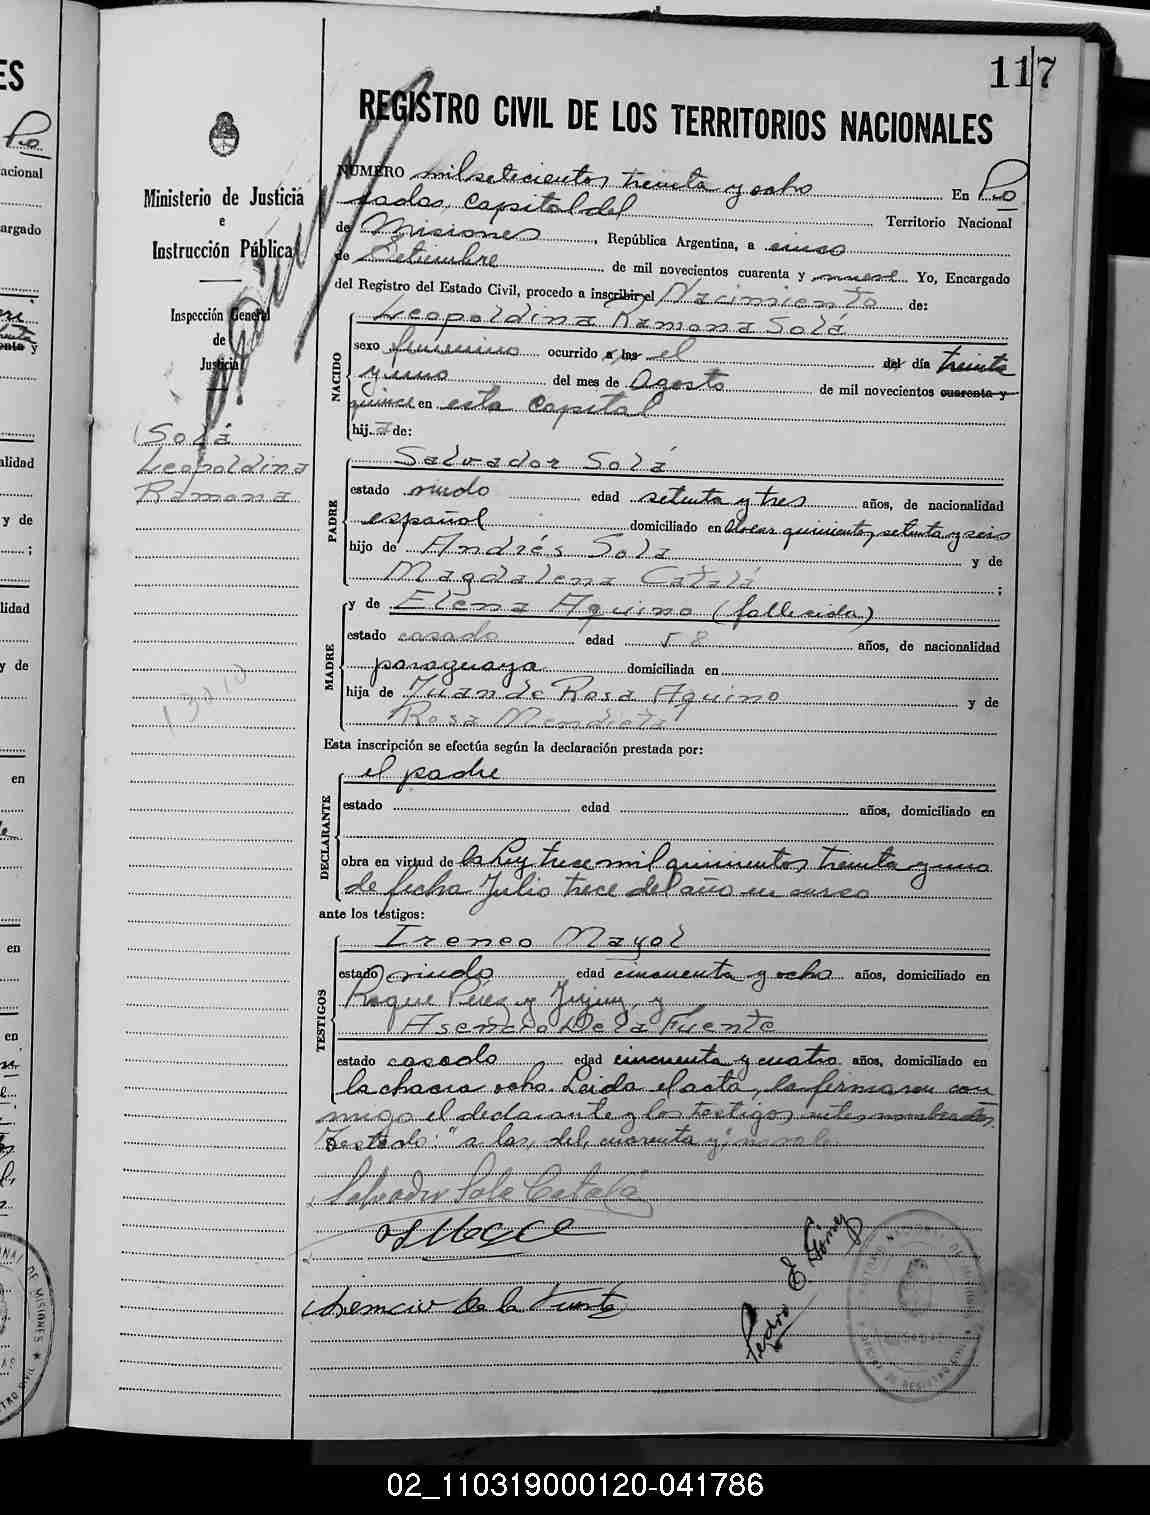 117
REGISTRO CIVIL DE LOS TERRITORIOS NACIONALES
Ministerio de Justicia
e
Instrucción Pública
Inspección General
de
Justicia
Solá
Leopoldina
Ramona
NUMERO mil setecientos treinta y ocho En Po
sadas, capital del Territorio Nacional
de Misiones, República Argentina, a cinco
de Setiembre de mil novecientos cuarenta y nueve Yo, Encargado
del Registro del Estado Civil, procedo a inscribir el Nacimiento de:
NACIDO
Leopoldina Ramona Solá
sexo femenino ocurrido a las el del día treinta
y uno del mes de Agosto de mil novecientos cuarenta y
quince en esta Capital
hija de:
PADRE
Salvador Solá
estado viudo edad setenta y tres años, de nacionalidad
español domiciliado en Alvear quinientos setenta y seis
hijo de Andrés Sola y de
Magdalena Catalá;
MADRE
y de Elena Aquino (fallecida)
estado casada edad 58 años, de nacionalidad
paraguaya domiciliada en
hija de Juan de Rosa Aquino y de
Rosa Mendieta
Esta inscripción se efectúa según la declaración prestada por:
DECLARANTE
el padre
estado edad años, domiciliado en
obra en virtud de la Ley trece mil quinientos treinta y uno
de fecha Julio trece del año en curso
ante los testigos:
TESTIGOS
Ireneo Mayol
estado viudo edad cincuenta y ocho años, domiciliado en
Roque Pérez y Jujuy y
Asencio De la Fuente
estado casado edad cincuenta y cuatro años, domiciliado en
la chacra ocho. Leida el acta, la firmaron con
migo el declarante y los testigos antes nombrados.
Testado: "a las, del, cuarenta y", no vale.
Salvador Sola Catalá
Asencio De la Fuente
Pedro E. Gómez
02_110319000120-041786